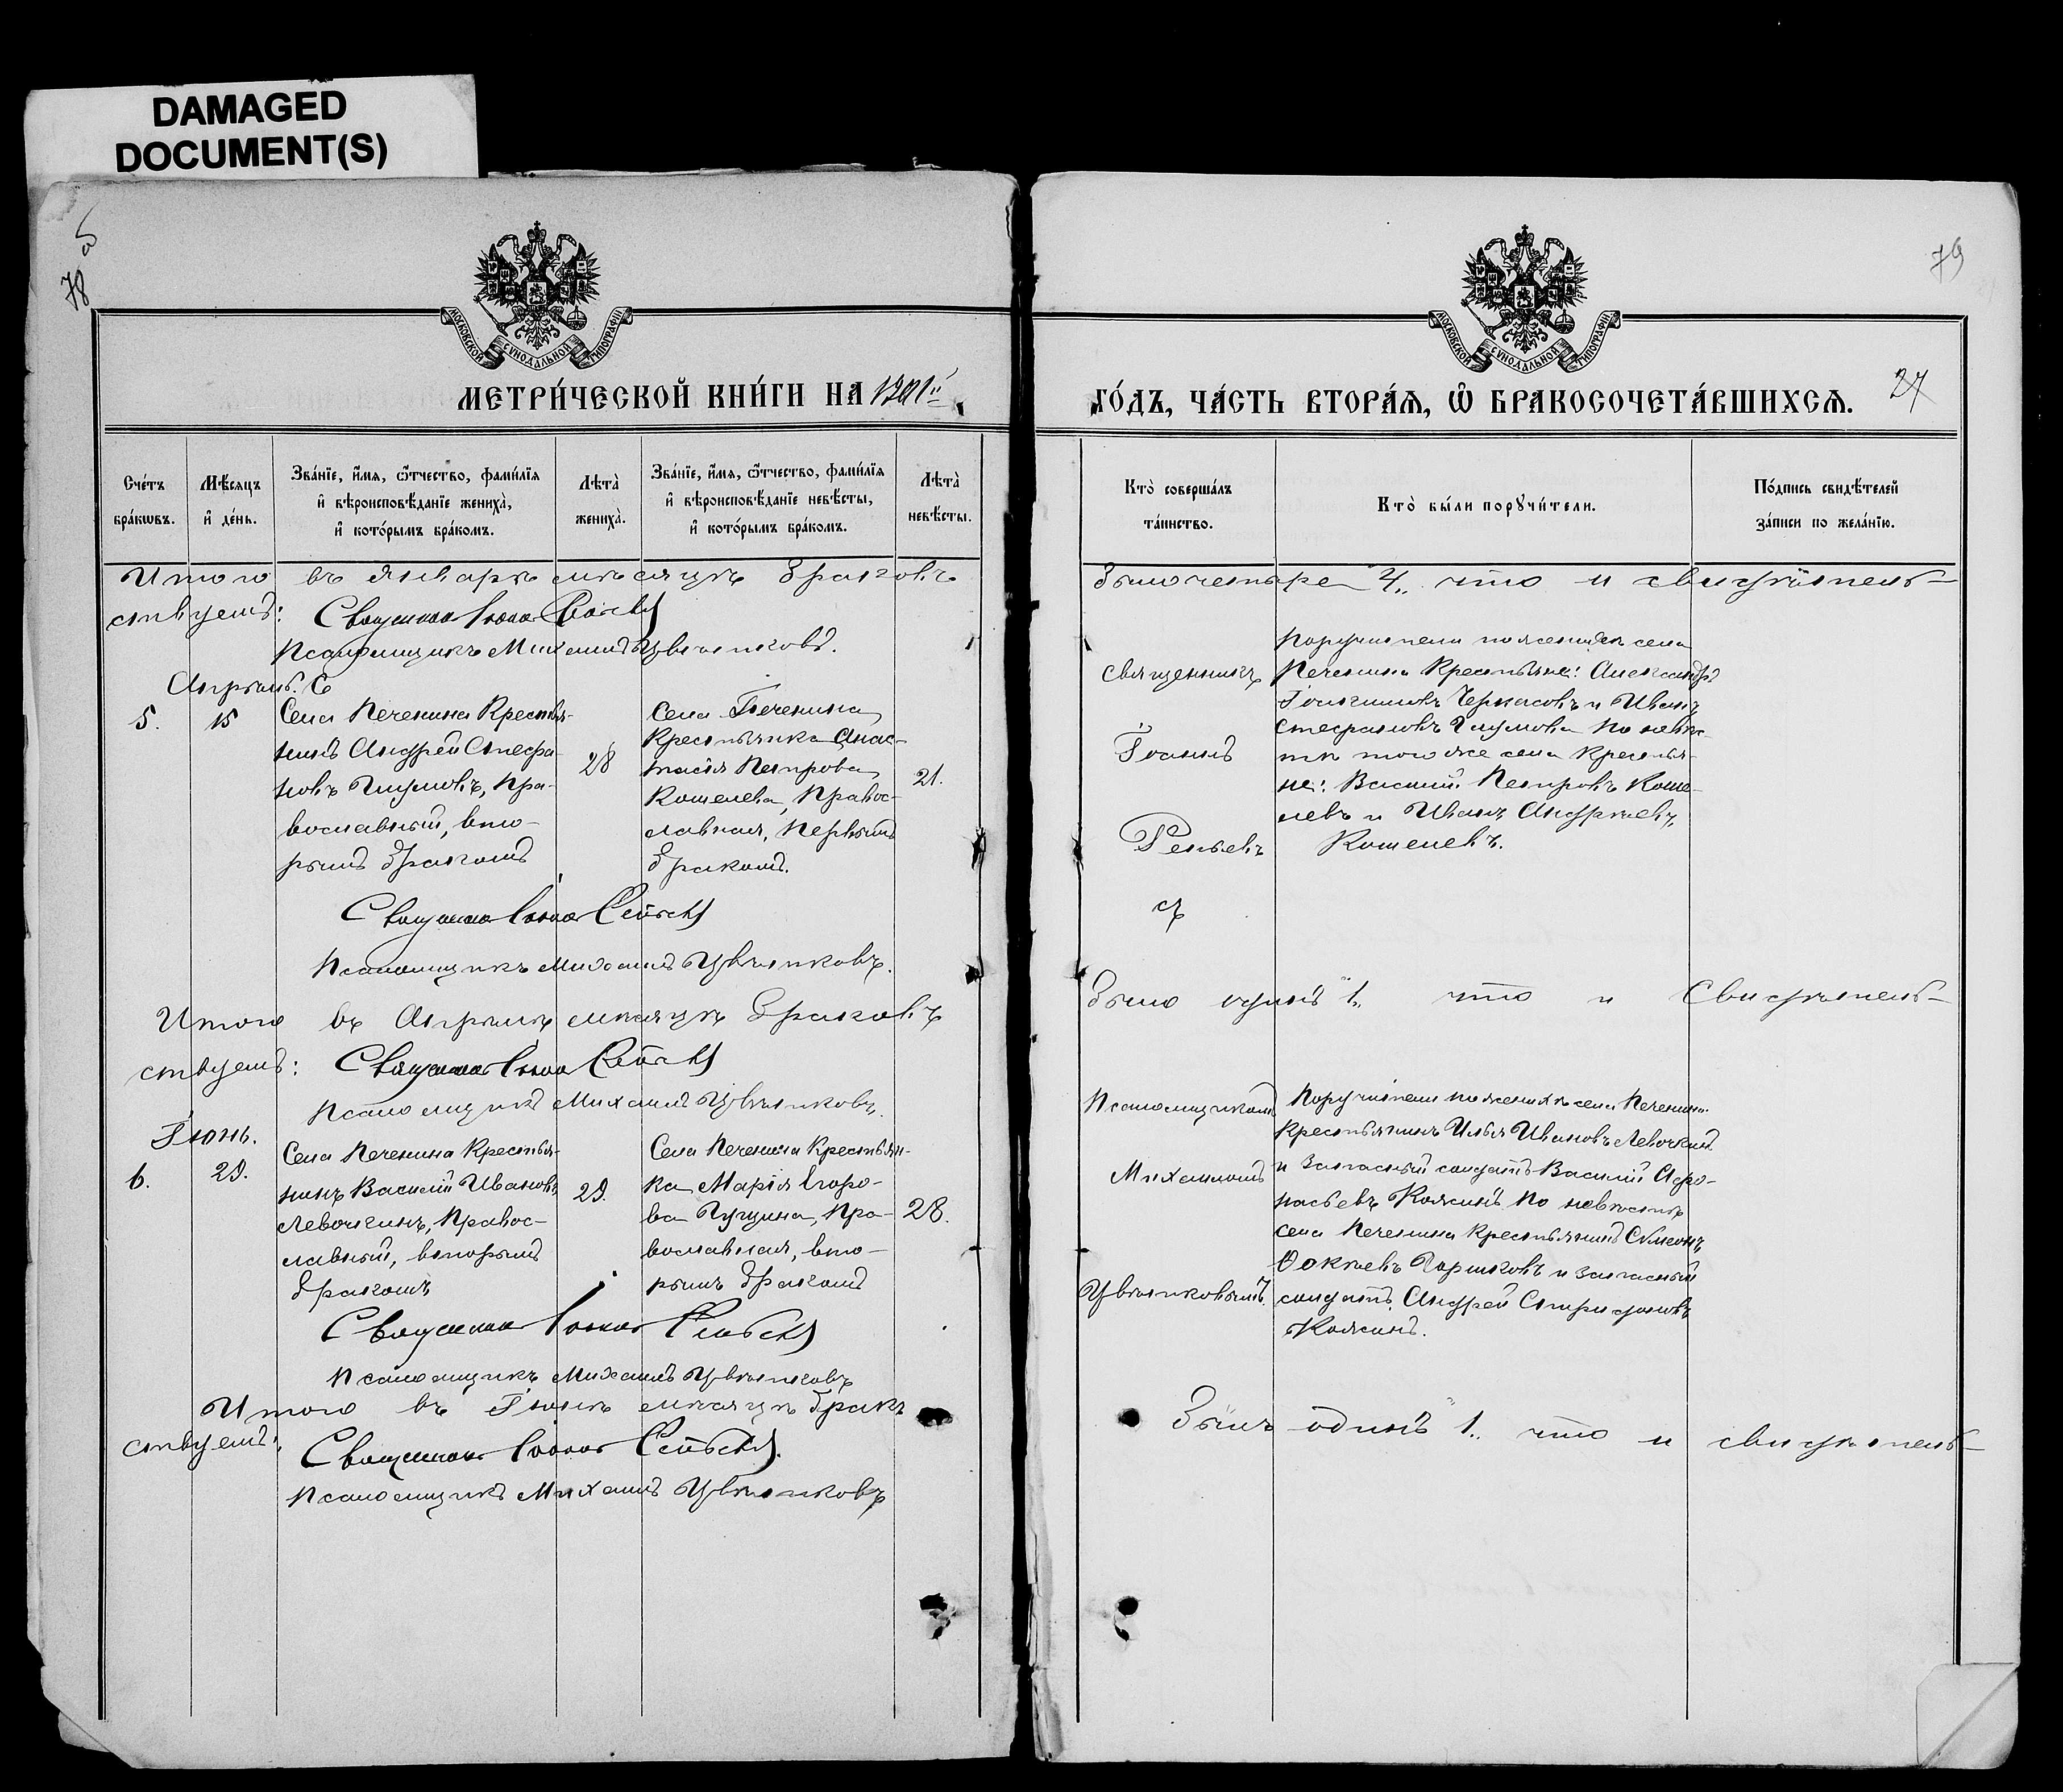 DAMAGED
DOCUMENT(S)
78
79
МОСКОВСКОЙ СѴНОДАЛЬНОЙ ТИПОГРАФІИ
МОСКОВСКОЙ СѴНОДАЛЬНОЙ ТИПОГРАФІИ
МЕТРИ́ЧЕСКОЙ КНИ́ГИ НА 1901й
ГО́ДЪ, ЧА́СТЬ ВТОРА́Ѧ, Ѡ҆ БРАКОСОЧЕТА́ВШИХСѦ.
27
Сче́тъ
бра́кѡвъ.
Мѣ́сяцъ
и҆ де́нь.
Зва́нїе, и҆́мя, ѻ҆́тчество, фами́лїя
и҆ вѣроисповѣ́данїе жениха̀,
и҆ кото́рымъ бра́комъ.
Лѣта̀
жениха̀.
Зва́нїе, и҆́мя, ѻ҆́тчество, фами́лїя
и҆ вѣроисповѣ́данїе невѣ́сты,
и҆ кото́рымъ бра́комъ.
Лѣта̀
невѣ́сты.
Кто̀ соверша́лъ
та́инство.
Кто̀ бы́ли порꙋчи́тели.
По́дпись свидѣ́телей
за́писи по жела́нїю.
Итого въ Январѣ мѣсяцѣ браковъ
было четыре "4" что и свидѣтель-
ствуемъ:
Псаломщикъ Михаилъ Цвѣтковъ.
Апрѣль.
5.
15
Села Печенина Крестья-
нинъ Андрей Стефа-
новъ Глумовъ, Пра-
вославный, вто-
рымъ бракомъ
28
Села Печенина
Крестьянка Анас-
тасія Петрова
Кошелева, Правос-
лавная, Первымъ
бракомъ.
21.
Священникъ
Іоаннъ
съ
Поручители по женихѣ села
Печенина Крестьяне: Александръ
Іоакимовъ Черкасовъ и Иванъ
Стефановъ Глумовъ По невѣс-
тѣ того же села Крестья-
не: Василій Петровъ Коше-
левъ и Иванъ Андреевъ
Кошелевъ.
Псаломщикъ Михаилъ Цвѣтковъ.
Итого въ Апрѣлѣ мѣсяцѣ браковъ
было одинъ "1" что и Свидѣтель-
ствуемъ:
Псаломщикъ Михаилъ Цвѣтковъ.
Іюнь.
6.
29.
Села Печенина Крестья-
нинъ Василій Ивановъ
Левочкинъ, Правос-
лавный, вторымъ
бракомъ
29.
Села Печенина Крестьян-
ка Марія Егоро-
ва Пущина, Пра-
вославная, вто-
рымъ бракомъ
28.
Псаломщикомъ
Михаиломъ
Цвѣтковымъ.
Поручители по женихѣ села Печенина
Крестьянинъ Илья Ивановъ Левочкинъ
и Запасный солдатъ Василій Афо-
насьевъ Кожинъ По невѣстѣ
села Печенина Крестьянинъ Симонъ
Горшковъ и запасный
солдатъ Андрей Спиридоновъ
Кожинъ.
Псаломщикъ Михаилъ Цвѣтковъ
Итого въ Іюнѣ мѣсяцѣ бракъ
былъ одинъ "1" что и свидѣтель-
ствуемъ:
Псаломщикъ Михаилъ Цвѣтковъ